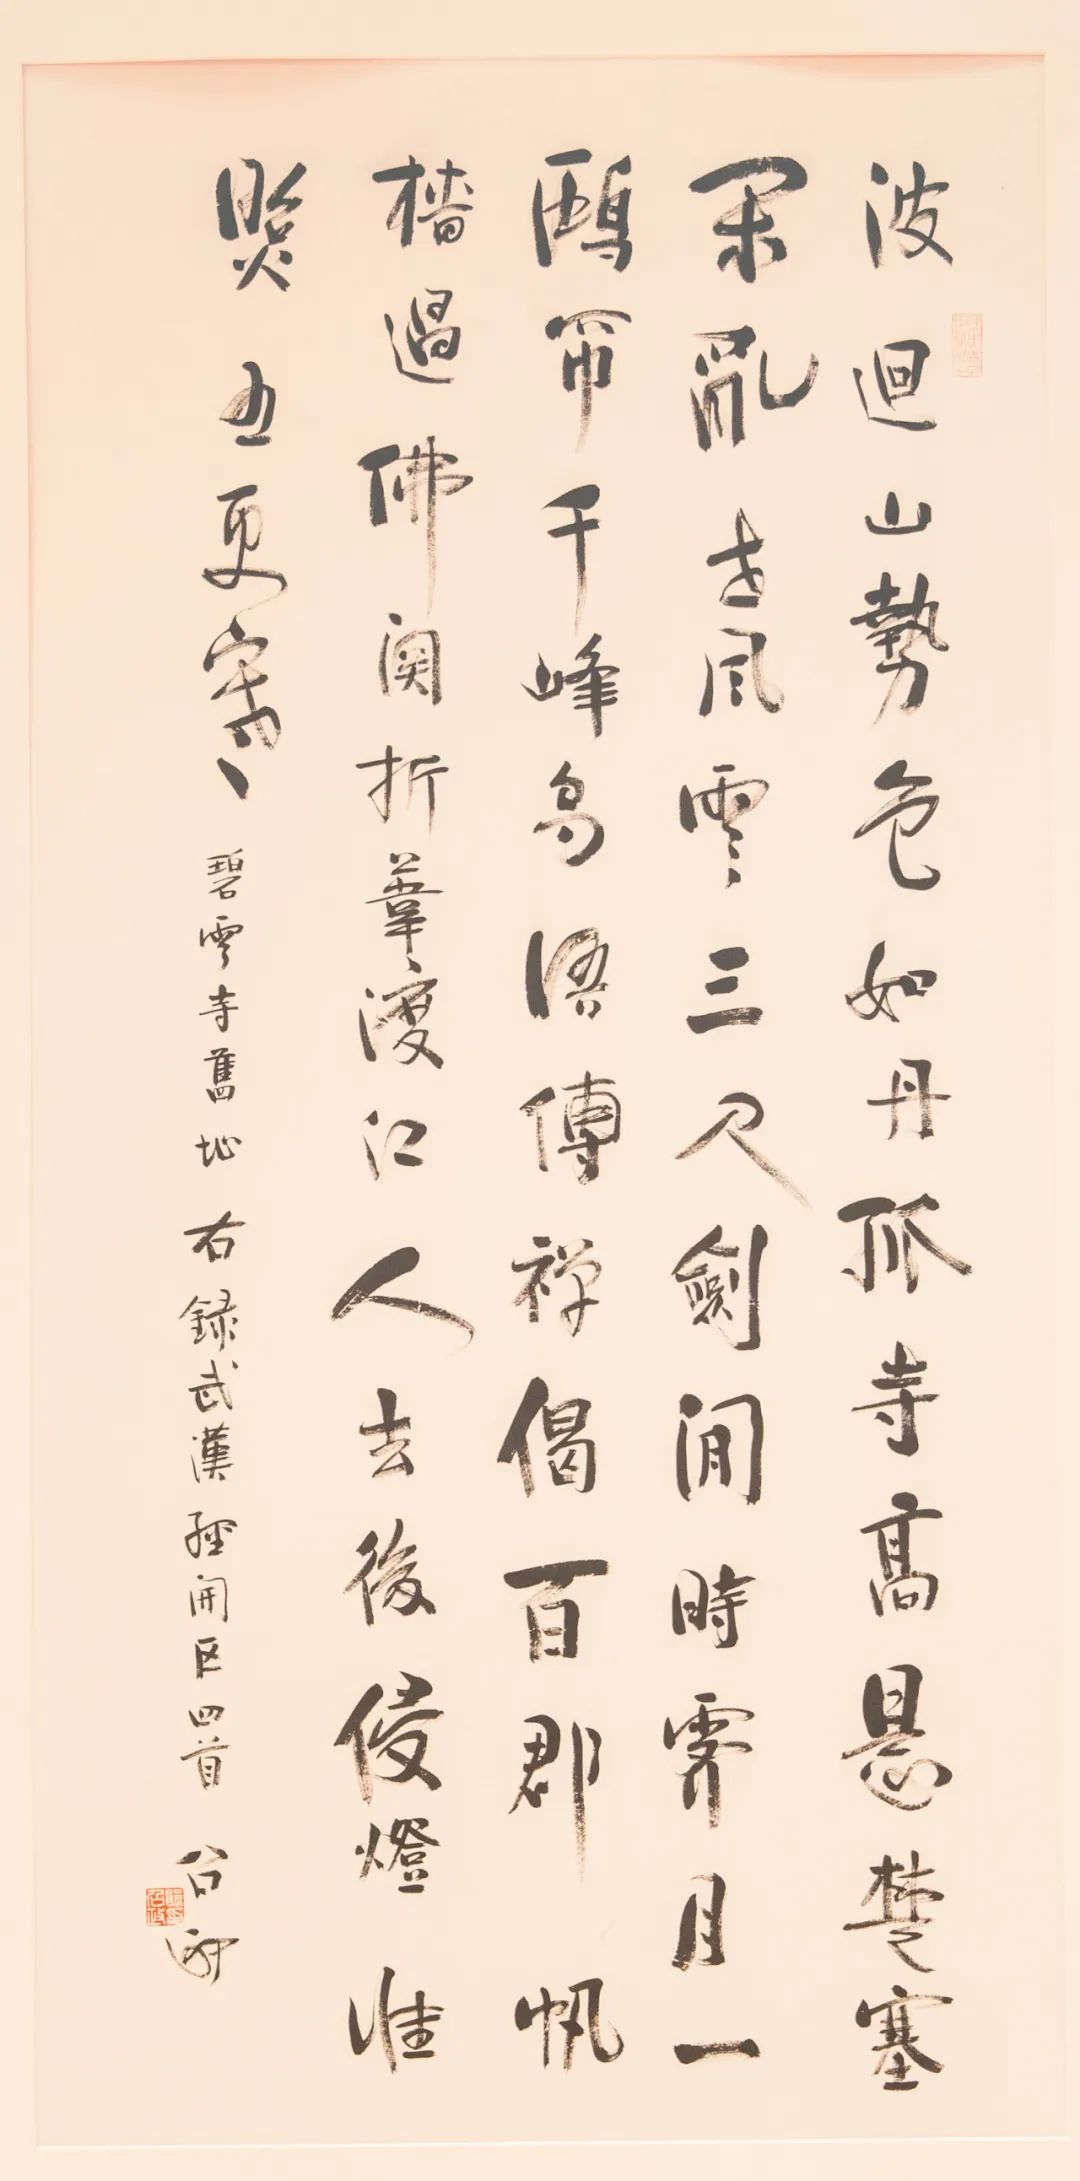 波迴山勢色如丹孤寺高懸楚塞
闌亂世風雲三尺劍閒時霽月一
鷗帘千峰鳥語傳禪偈百郡帆
檣過佛関折葦渡江人去後燈誰
照五更寒
碧雲寺舊址 右録武漢經開区四首